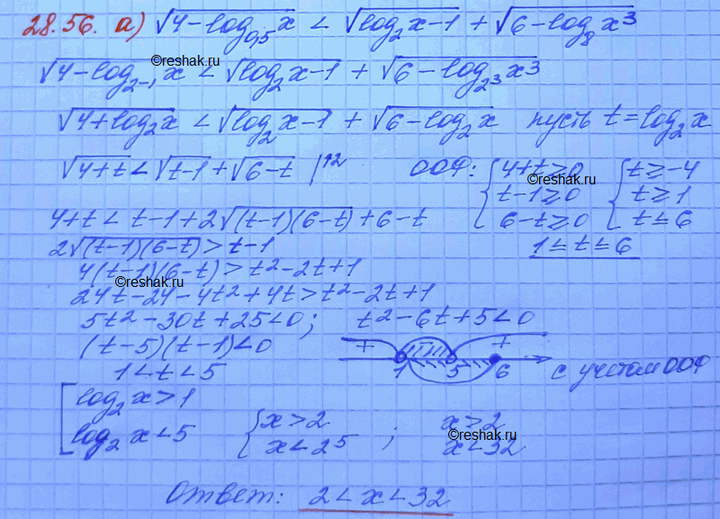 28.56. а) √4-log₀,₅x < √log₂x-1 + √6-log₈x³
©reshak.ru
√4-log₂₋₁x < √log₂x-1 + √6-log₂³x³
√4+log₂x < √log₂x-1 + √6-log₂x пусть t=log₂x
√4+t < √t-1 + √6-t |↑2 ООФ: { 4+t≥0 { t≥-4
©reshak.ru
t-1≥0 t≥1
4+t < t-1+2√(t-1)(6-t)+6-t 6-t≥0 t≤6
2√(t-1)(6-t)>t-1 1≤t≤6
4(t-1)(6-t)>t²-2t+1
©reshak.ru
24t-24-4t²+4t>t²-2t+1
5t²-30t+25<0; t²-6t+5<0
(t-5)(t-1)<0 + +
1<t<5 1 5 6 с учетом ООФ
[ log₂x>1
log₂x<5 { x>2 ; x>2
x<2⁵ x<32
©reshak.ru
Ответ: 2<x<32